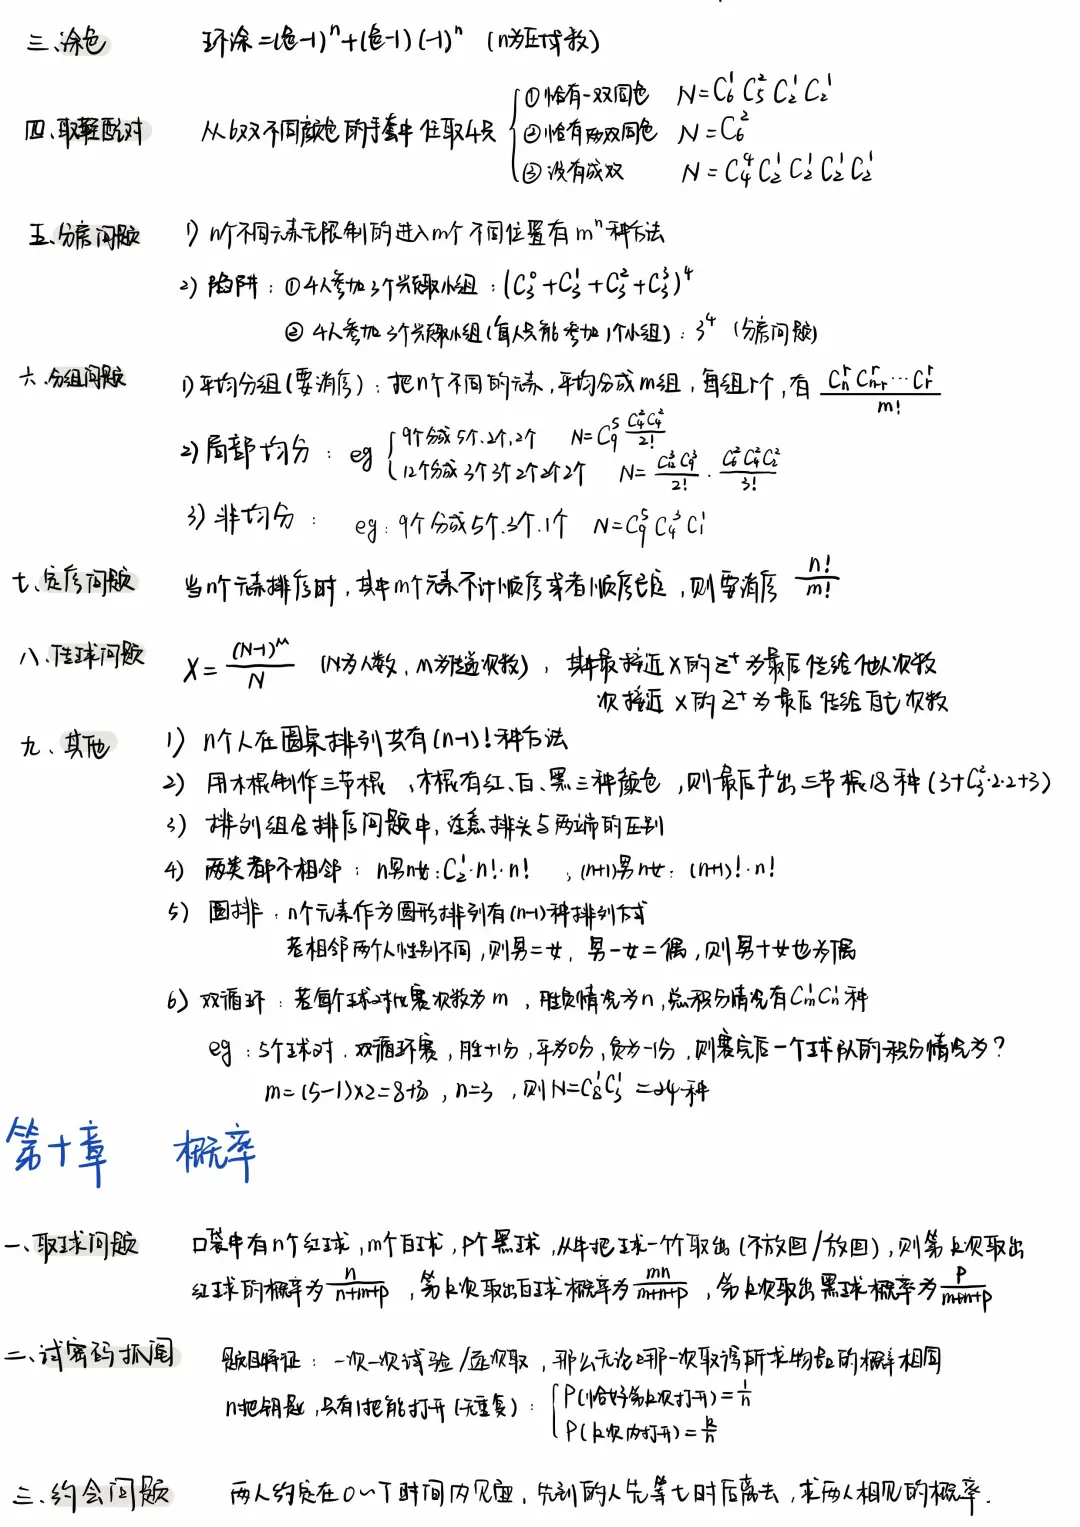 三、涂色 环涂=(色-1)ⁿ+(色-1)(-1)ⁿ (n为区域数)
四、取鞋配对 从6双不同颜色的手套中任取4只
①恰有一双同色 N=C₆¹C₅²C₂¹C₂¹
②恰有两双同色 N=C₆²
③没有成双 N=C₄⁴C₂¹C₂¹C₂¹C₂¹
五、分房问题 1) n个不同元素无限制的进入m个不同位置有mⁿ种方法
2) 陷阱:①4人参加3个兴趣小组:(C₃⁰+C₃¹+C₃²+C₃³)⁴
②4人参加3个兴趣小组(每人只能参加1个小组):3⁴ (分房问题)
六、分组问题 1)平均分组(要消序):把n个不同的元素,平均分成m组,每组r个,有 CₙʳCₙ₋ᵣʳ…Cᵣʳ/m!
2)局部均分:eg 9个分成5个、2个、2个 N=C₉⁵ C₄²C₂²/2!
12个分成3个3个2个2个2个 N=C₁₂³C₉³/2!·C₆²C₄²C₂²/3!
3)非均分: eg:9个分成5个、3个、1个 N=C₉⁵C₄³C₁¹
七、定序问题 当n个元素排序时,其中m个元素不计顺序或者顺序已定,则要消序 n!/m!
八、传球问题 X=(N-1)ᴹ/N (N为人数,M为传递次数),其中最接近X的Z⁺为最后传给他人次数
次接近X的Z⁺为最后传给自己次数
九、其他 1) n个人在圆桌排列共有(n-1)!种方法
2) 用木棍制作三节棍,木棍有红、白、黑三种颜色,则最后产出三节棍18种(3+C₃²·2·2+3)
3) 排列组合排序问题中,注意排头与两端的区别
4) 两类都不相邻:n男n女:C₂¹·n!·n! ,(n+1)男n女:(n+1)!·n!
5) 圆排:n个元素作为圆形排列有(n-1)种排列方式
若相邻两个人性别不同,则男=女,男-女=偶,则男+女也为偶
6) 双循环:若每个球对比赛次数为m,胜负情况为n,总积分情况有Cₘ¹Cₙ¹种
eg:5个球对,双循环赛,胜+1分,平为0分,负为-1分,则赛完后一个球队的积分情况为?
m=(5-1)×2=8场,n=3,则N=C₈¹C₃¹=24种
第十章 概率
一、取球问题 口袋中有n个红球,m个白球,p个黑球,从中把球一个个取出(不放回/放回),则第k次取出
红球的概率为 n/n+m+p,第k次取出白球概率为 m/m+n+p,第k次取出黑球概率为 p/m+n+p
二、试密码抓阄 题目特征:一次一次试验/逐次取,那么无论哪一次取得所求物品的概率相同
n把钥匙,只有1把能打开(无重复):
P(恰好第k次打开)=1/n
P(k次内打开)=k/n
三、约会问题 两人约定在0~T时间内见面,先到的人先等t时后离去,求两人相见的概率.